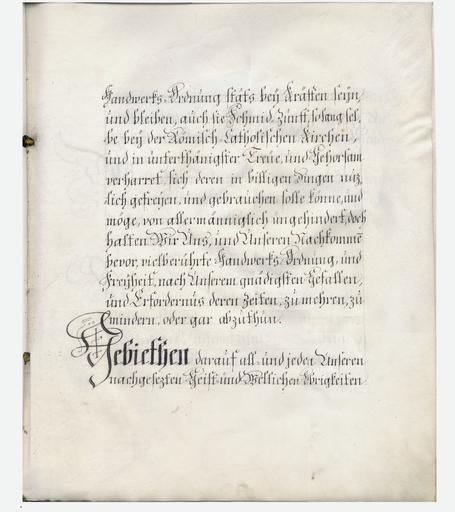 Handwerks Ordnung stäts beÿ Kräften seÿn,
und bleiben, auch sie Schmid Zunft, so lang sel,
be beÿ der Römisch Catholischen Kirchen
und in unterthänigster Treue, und Gehorsam
verharret, sich deren in billigen dingen nüz,
lich gefreÿen, und gebrauchen solle könne, und
möge, von allermänniglich ungehindert, doch
halten Wir Uns, und Unseren Nachkommen
bevor, vielberührte Handwerks Ordnung, und
Freÿheit, nach Unserem gnädigsten Gefallen,
und Erfordernus deren Zeiten, zu mehren, zu
mindern, oder gar abzuthun.
Gebiethen darauf all- und jeden Unseren
nachgesezten Geist- und Weltlichen Obrigkeiten